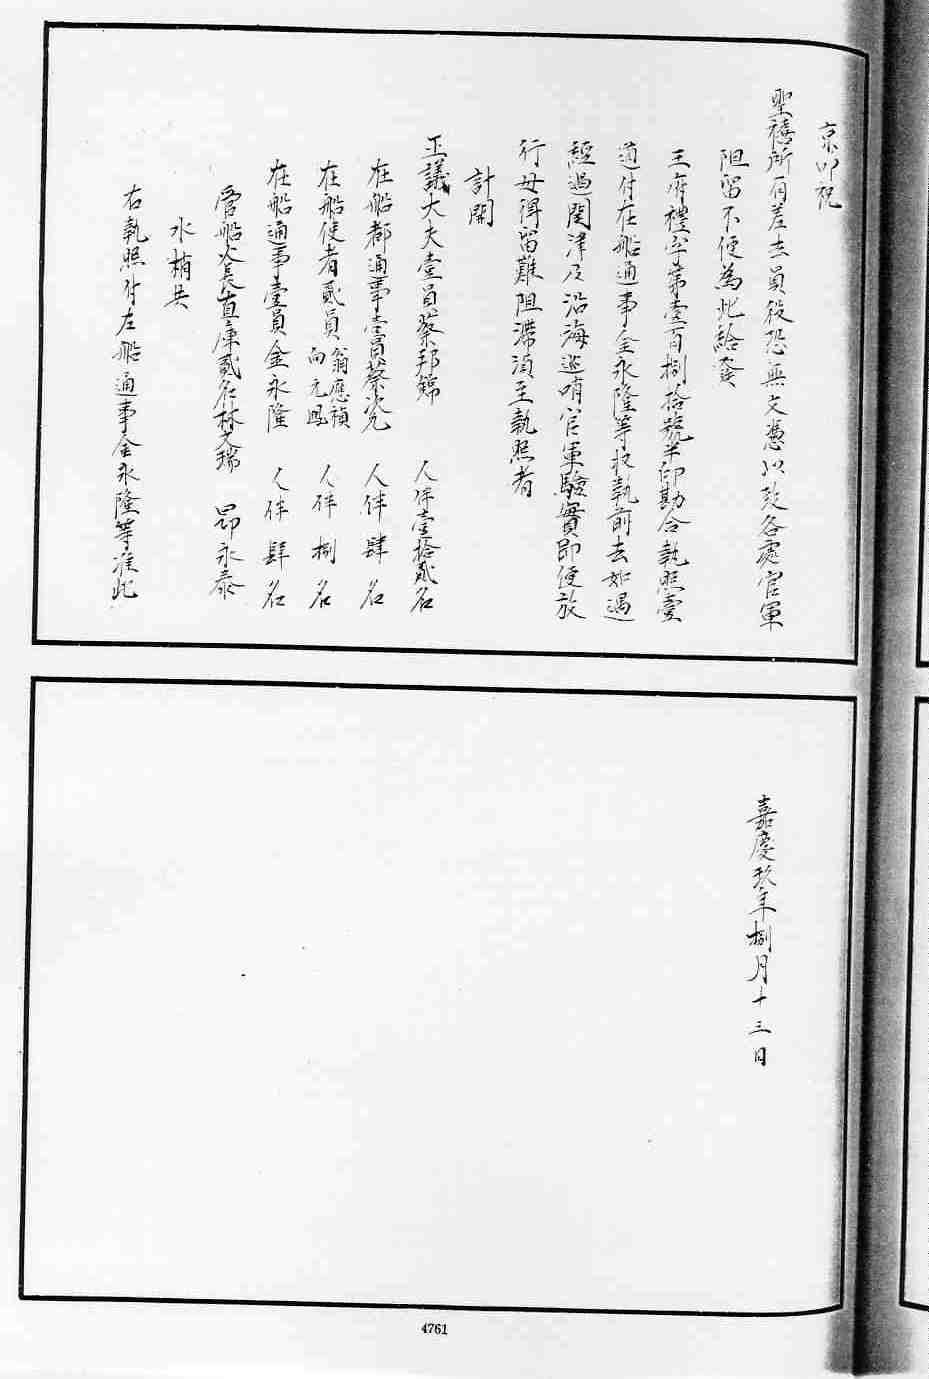 京叩祝
聖禧所有差去員役恐無文憑以致各處官軍
阻留不便為此給發
王府禮字第壹百捌拾號半印勘合執照壹
道付在船通事金永隆等收執前去如遇
經過関津及沿海巡哨官軍驗實即便放
行毋得留難阻滯須至執照者
計開
正議大夫壹員蔡邦錦 人伴壹拾貳名
在船都通事壹員蔡 人伴肆名
在船使者貳員 翁應禎 向元鳳 人伴捌名
在船通事壹員金永隆 人伴肆名
管船火長直庫貳名林文瑞 昂永泰
水梢共
右執照付在船通事金永隆等准此
嘉慶玖年捌月十三日
4761